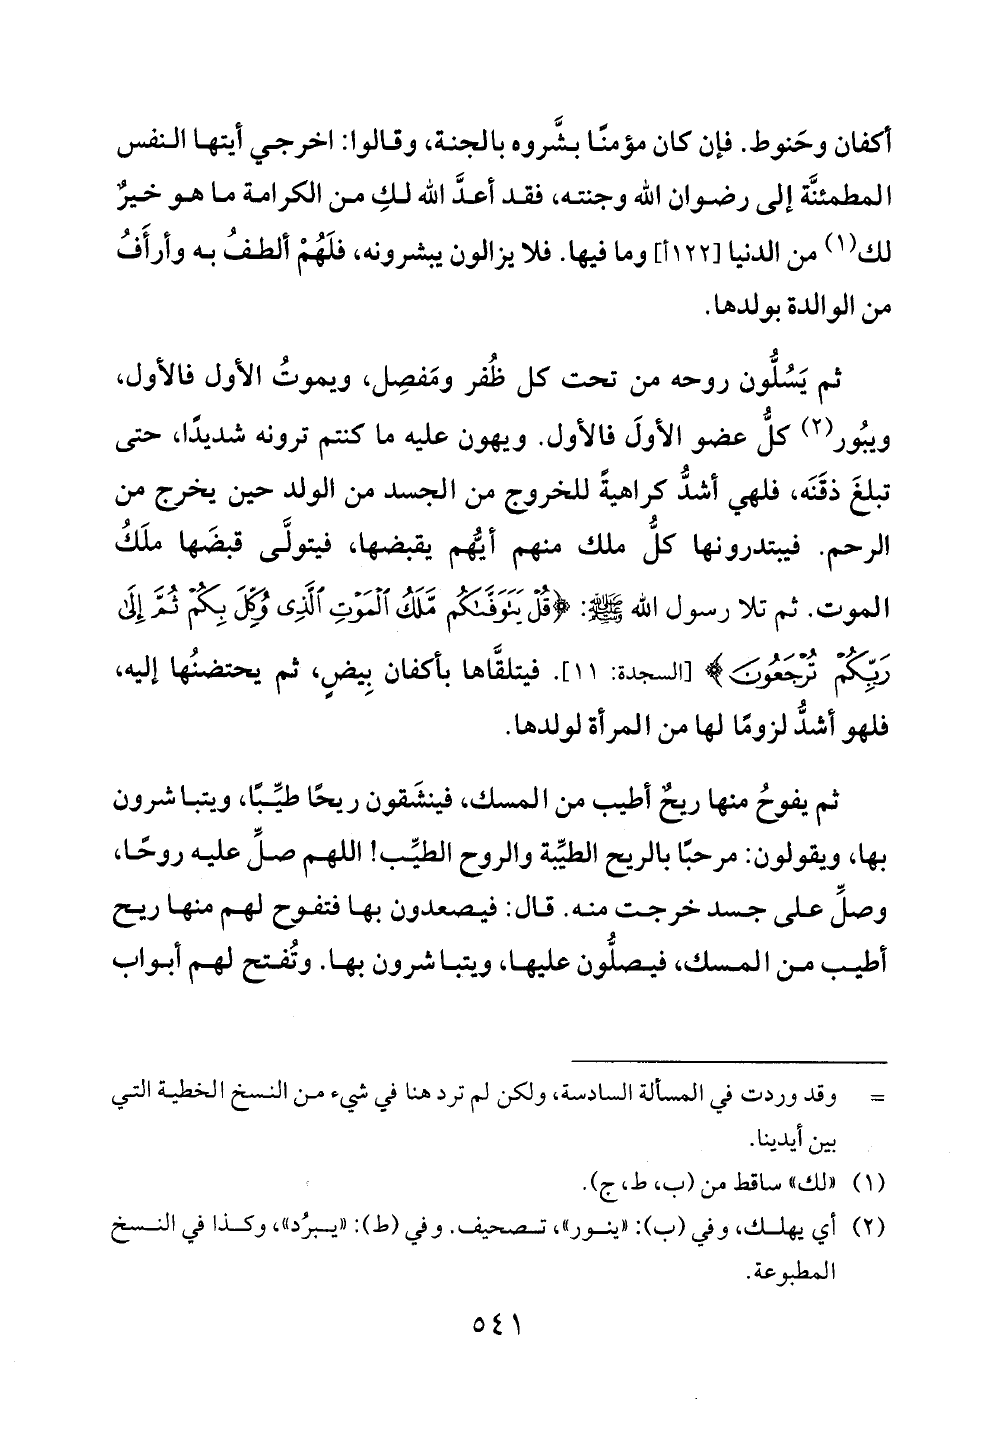 أكفان وحَنوط. فإن كان مؤمنًا بشَّروه بالجنة، وقالوا: اخرجي أيتها النفس
المطمئنَّة إلى رضوان الله وجنته، فقد أعدَّ الله لكِ من الكرامة ما هو خيرٌ
لك(١) من الدنيا [١٢٢أ] وما فيها. فلا يزالون يبشرونه، فلَهُمْ ألطفُ به وأرأَفُ
من الوالدة بولدها.
ثم يَسُلُّون روحه من تحت كل ظُفر ومَفصِل، ويموتُ الأول فالأول،
ويبُور(٢) كلُّ عضو الأولَ فالأول. ويهون عليه ما كنتم ترونه شديدًا، حتى
تبلغَ ذقَنَه، فلهي أشدُّ كراهيةً للخروج من الجسد من الولد حين يخرج من
الرحم. فيبتدرونها كلُّ ملك منهم أيُّهم يقبضها، فيتولَّى قبضَها ملَكُ
الموت. ثم تلا رسول الله ﷺ: ﴿قُلْ يَتَوَفَّىٰكُم مَّلَكُ ٱلْمَوْتِ ٱلَّذِى وُكِّلَ بِكُمْ ثُمَّ إِلَىٰ
رَبِّكُمْ تُرْجَعُونَ﴾ [السجدة: ١١]. فيتلقَّاها بأكفان بِيضٍ، ثم يحتضنُها إليه،
فلهو أشدُّ لزومًا لها من المرأة لولدها.
ثم يفوحُ منها ريحٌ أطيب من المسك، فينشَقون ريحًا طيِّبًا، ويتباشرون
بها، ويقولون: مرحبًا بالريح الطيِّبة والروح الطيِّب! اللهم صلِّ عليه روحًا،
وصلِّ على جسد خرجت منه. قال: فيصعدون بها فتفوح لهم منها ريح
أطيب من المسك، فيصلُّون عليها، ويتباشرون بها. وتُفتح لهم أبواب
= وقد وردت في المسألة السادسة، ولكن لم ترد هنا في شيء من النسخ الخطية التي
بين أيدينا.
(١) «لك» ساقط من (ب، ط، ج).
(٢) أي يهلك، وفي (ب): «ينور»، تصحيف. وفي (ط): «يبرُد»، وكذا في النسخ
المطبوعة.
٥٤١